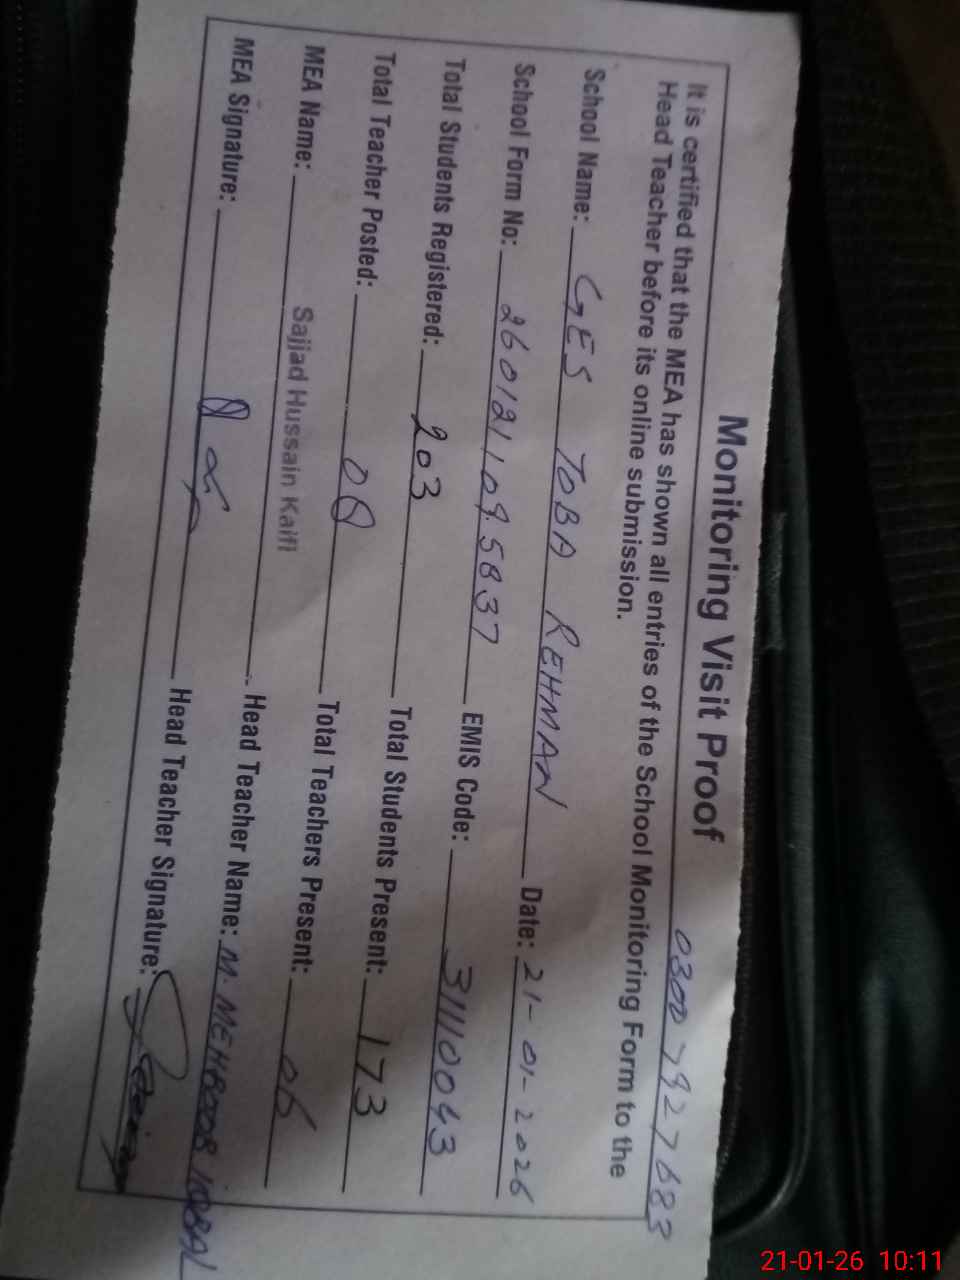 Monitoring Visit Proof
0300 7927683
It is certified that the MEA has shown all entries of the School Monitoring Form to the
Head Teacher before its online submission.
School Name: GES TOBA REHMAN Date: 21-01-2026
School Form No: 260121109.5837 EMIS Code: 31110043
Total Students Registered: 203 Total Students Present: 173
Total Teacher Posted: 08 Total Teachers Present: 06
MEA Name: Sajjad Hussain Kaifi Head Teacher Name: M. MEHBOOB IQBAL
MEA Signature: Head Teacher Signature:
21-01-26 10:11